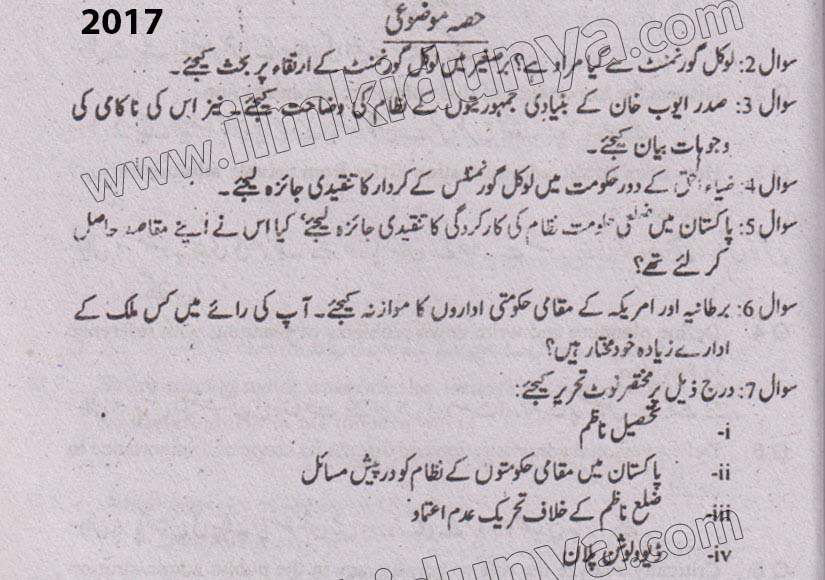 2017
حصہ موضوعی
سوال 2: لوکل گورنمنٹ سے کیا مراد ہے؟ برصغیر میں لوکل گورنمنٹ کے ارتقاء پر بحث کیجئے۔
سوال 3: صدر ایوب خان کے بنیادی جمہوریتوں کے نظام کی وضاحت کیجئے۔ نیز اس کی ناکامی کی
وجوہات بیان کیجئے۔
سوال 4: ضیاء الحق کے دور حکومت میں لوکل گورنمنٹس کے کردار کا تنقیدی جائزہ لیجئے۔
سوال 5: پاکستان میں ضلعی حکومت نظام کی کارکردگی کا تنقیدی جائزہ لیجئے‘ کیا اس نے اپنے مقاصد حاصل
کر لئے تھے؟
سوال 6: برطانیہ اور امریکہ کے مقامی حکومتی اداروں کا موازنہ کیجئے۔ آپ کی رائے میں کس ملک کے
ادارے زیادہ خودمختار ہیں؟
سوال 7: درج ذیل پر مختصر نوٹ تحریر کیجئے:
i- تحصیل ناظم
ii- پاکستان میں مقامی حکومتوں کے نظام کو درپیش مسائل
iii- ضلع ناظم کے خلاف تحریک عدم اعتماد
iv- ڈیوولوشن پلان
www.ilmkidunya.com